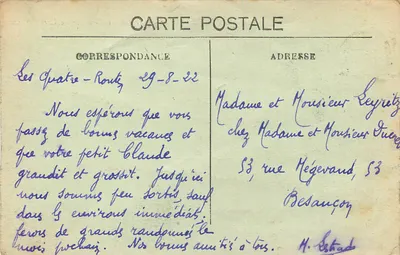 CARTE POSTALE
CORRESPONDANCE
Les Quatre-Routes 29-8-22
Nous espérons que vous
passez de bonnes vacances et
que votre petit Claude
grandit et grossit. Jusqu'ici
nous sommes peu sortis, sauf
dans les environs immédiats,
ferons de grandes randonnées le
mois prochain. Nos bonnes amitiés à tous.
ADRESSE
Madame et Monsieur
chez Madame et Monsieur
53, rue Mégevand, 53
Besançon